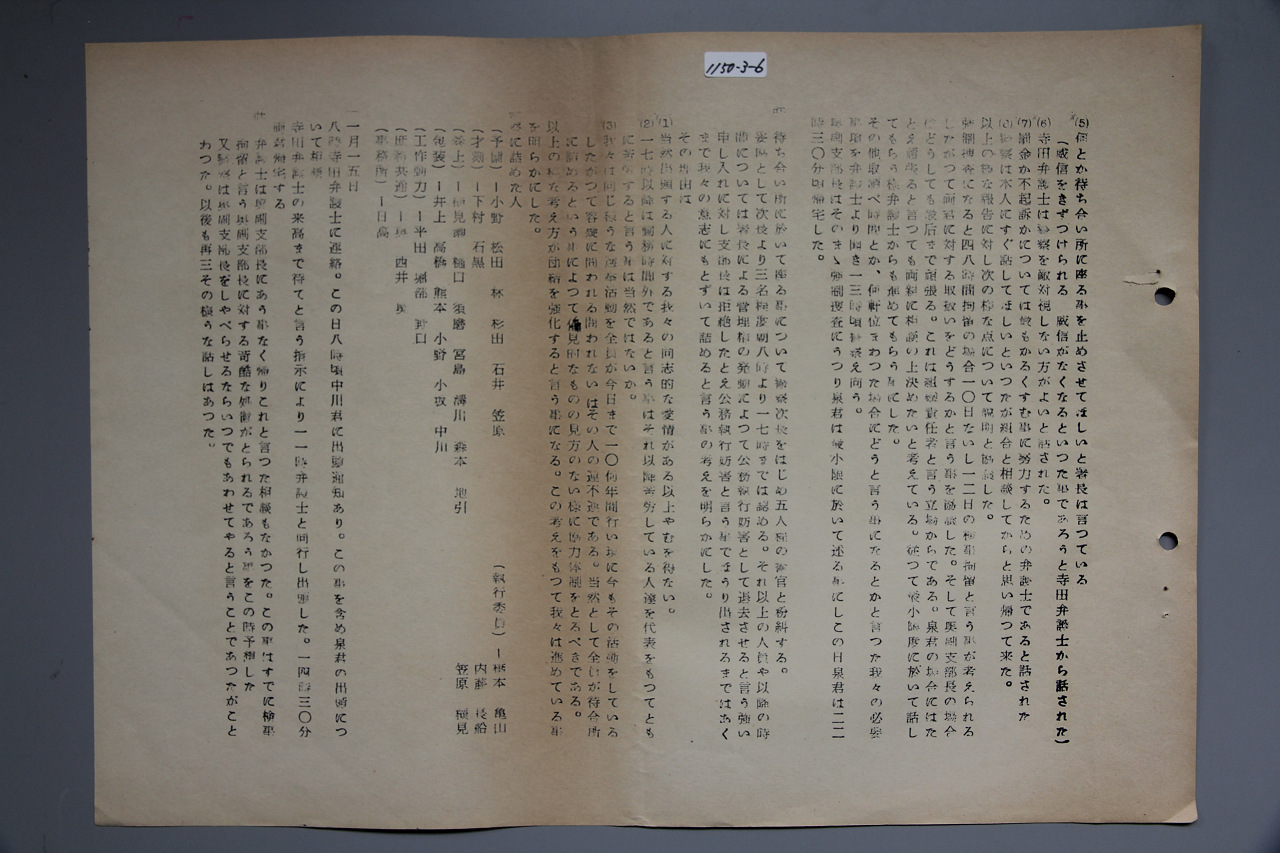 1150-3-6
(5)何とか待ち合い所に座る事を止めさせてほしいと署長は言つている
(威信をきずつけられる 威信がなくなるといつた事であろうと寺田弁護士から話された)
(6)寺田弁護士は警察を敵対視しない方がよいと話された。
(7)罰金か不起訴かについては最もかるくすむ事に努力するための弁護士であると話された
警察は本人にすぐ話してほしいといつたが組合と相談してからと思い帰つて来た。
以上の様な報告に対し次の様な点について説明と協議した。
強制捜査になると四八時間拘留の場合一〇日ないし一二日の検事拘留と言う事が考えられる
したがつて両君に対する取扱いをどうするかと言う事を協議した。そして奥副支部長の場合
はどうしても最后まで頑張る。これは組織責任者と言う立場からである。泉君の場合にはた
とえ頑張ると言つても両親に相談の上決めたいと考えている。従つて最小限度に於いて話し
てもらう様弁護士からも進めてもらう事にした。
その他取調べ時間とか、何軒位まわつた場合にどうと言う事になるとかと言つた我々の必要
事項を弁護士より聞き一三時頃警察え向う。
奥副支部長はそのまゝ強制捜査にうつり泉君は最小限に於いて述る事にしこの日泉君は二二
時三〇分頃帰宅した。
待ち合い所に於いて座る事について警察次長をはじめ五人程の警官と紛糾する。
妥協として次長より三名程度朝八時より一七時までは認める。それ以上の人員や以降の時
間については署長による管理権の発動によつて公務執行妨害として退去させると言う強い
申し入れに対し支部長は拒絶したとえ公務執行妨害と言う事でほうり出されるまではあく
まで我々の意志にもとずいて詰めると言う事の考えを明らかにした。
その理由は
(1)当然出頭する人に対する我々の同志的な愛情がある以上やむを得ない。
(2)一七時以降は勤務時間外であると言う事はそれ以降苦労している人達を代表をもつてとも
に苦労すると言う事は当然ではないか。
(3)我々は同じ様うな選挙活動を全員が今日まで一〇何年間行い現に今もその活動をしている
したがつて容疑に問われる問われないはその人の運不運である。当然として全員が待合所
に詰めるという事によつて偏見的なものの見方のない様に協力体制をとるべきである。
以上の様な考え方が団結を強化すると言う事になる。この考えをもつて我々は進めている事
を明らかにした。
に詰めた人
小野 松田 林 杉田 石井 笠原 (執行委員)ー橋本 亀山
(才刻)ー下村 石黒 内藤 長船
樋口 須磨 宮島 溝川 森本 地引 笠原 種見
(包装)ー井上 高橋 熊本 小野 小坂 中川
(工作動力)ー平田 堀部 野口
(事務所)ー日高
一月一五日
八時寺田弁護士に連絡。この日八時頃中川君に出頭通知あり。この事を含め泉君の出頭につ
いて相談
寺田弁護士の来高まで待てと言う指示により一一時弁護士と同行し出頭した。一四時三〇分
両君帰宅する
弁護士は奥副支部長にあう事なく帰りこれと言つた相談もなかつた。この事はすでに検事
拘留と言う奥副支部長に対する苛酷な処置がとられるであろう事をこの時予想した
又警察は奥副支部長をしやべらせるならいつでもあわせてやると言うことであつたがこと
わつた。以後も再三その様うな話しはあつた。